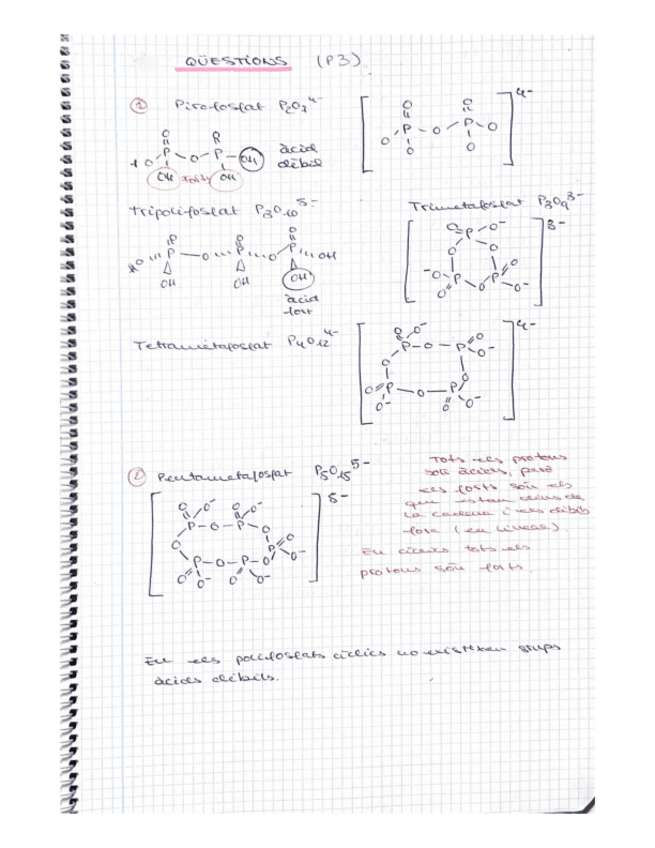 QÜESTIONS (P3)
② Pirofosfat P₂O₇⁴⁻
àcid
dèbil
forts
Tripolifosfat P₃O₁₀⁵⁻
Trimetafosfat P₃O₉³⁻
àcid
fort
Tetrametafosfat P₄O₁₂⁴⁻
Pentametafosfat P₅O₁₅⁵⁻
Tots els protons
són àcids, però
els forts són els
que estan dins de
la cadena i els dèbils
fora (en lineal).
En cíclics tots els
protons són forts.
En els polifosfats cíclics no existeixen grups
àcids dèbils.